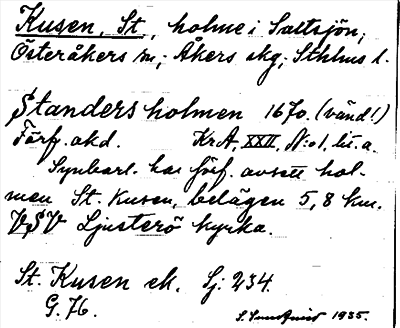 Kusen, St, holme i Saltsjön;
Österåkers sn; Åkers skg; Sthlms l.
Standersholmen 1670. (vänd!)
Förf. okd. KrA, XXII, N:o 1, lit. a.
Synbarl. har förf. avsett hol-
men St. Kusen, belägen 5,8 km.
VSV Ljusterö kyrka.
St. Kusen ek. Sj: 234.
G. 76.
1935.